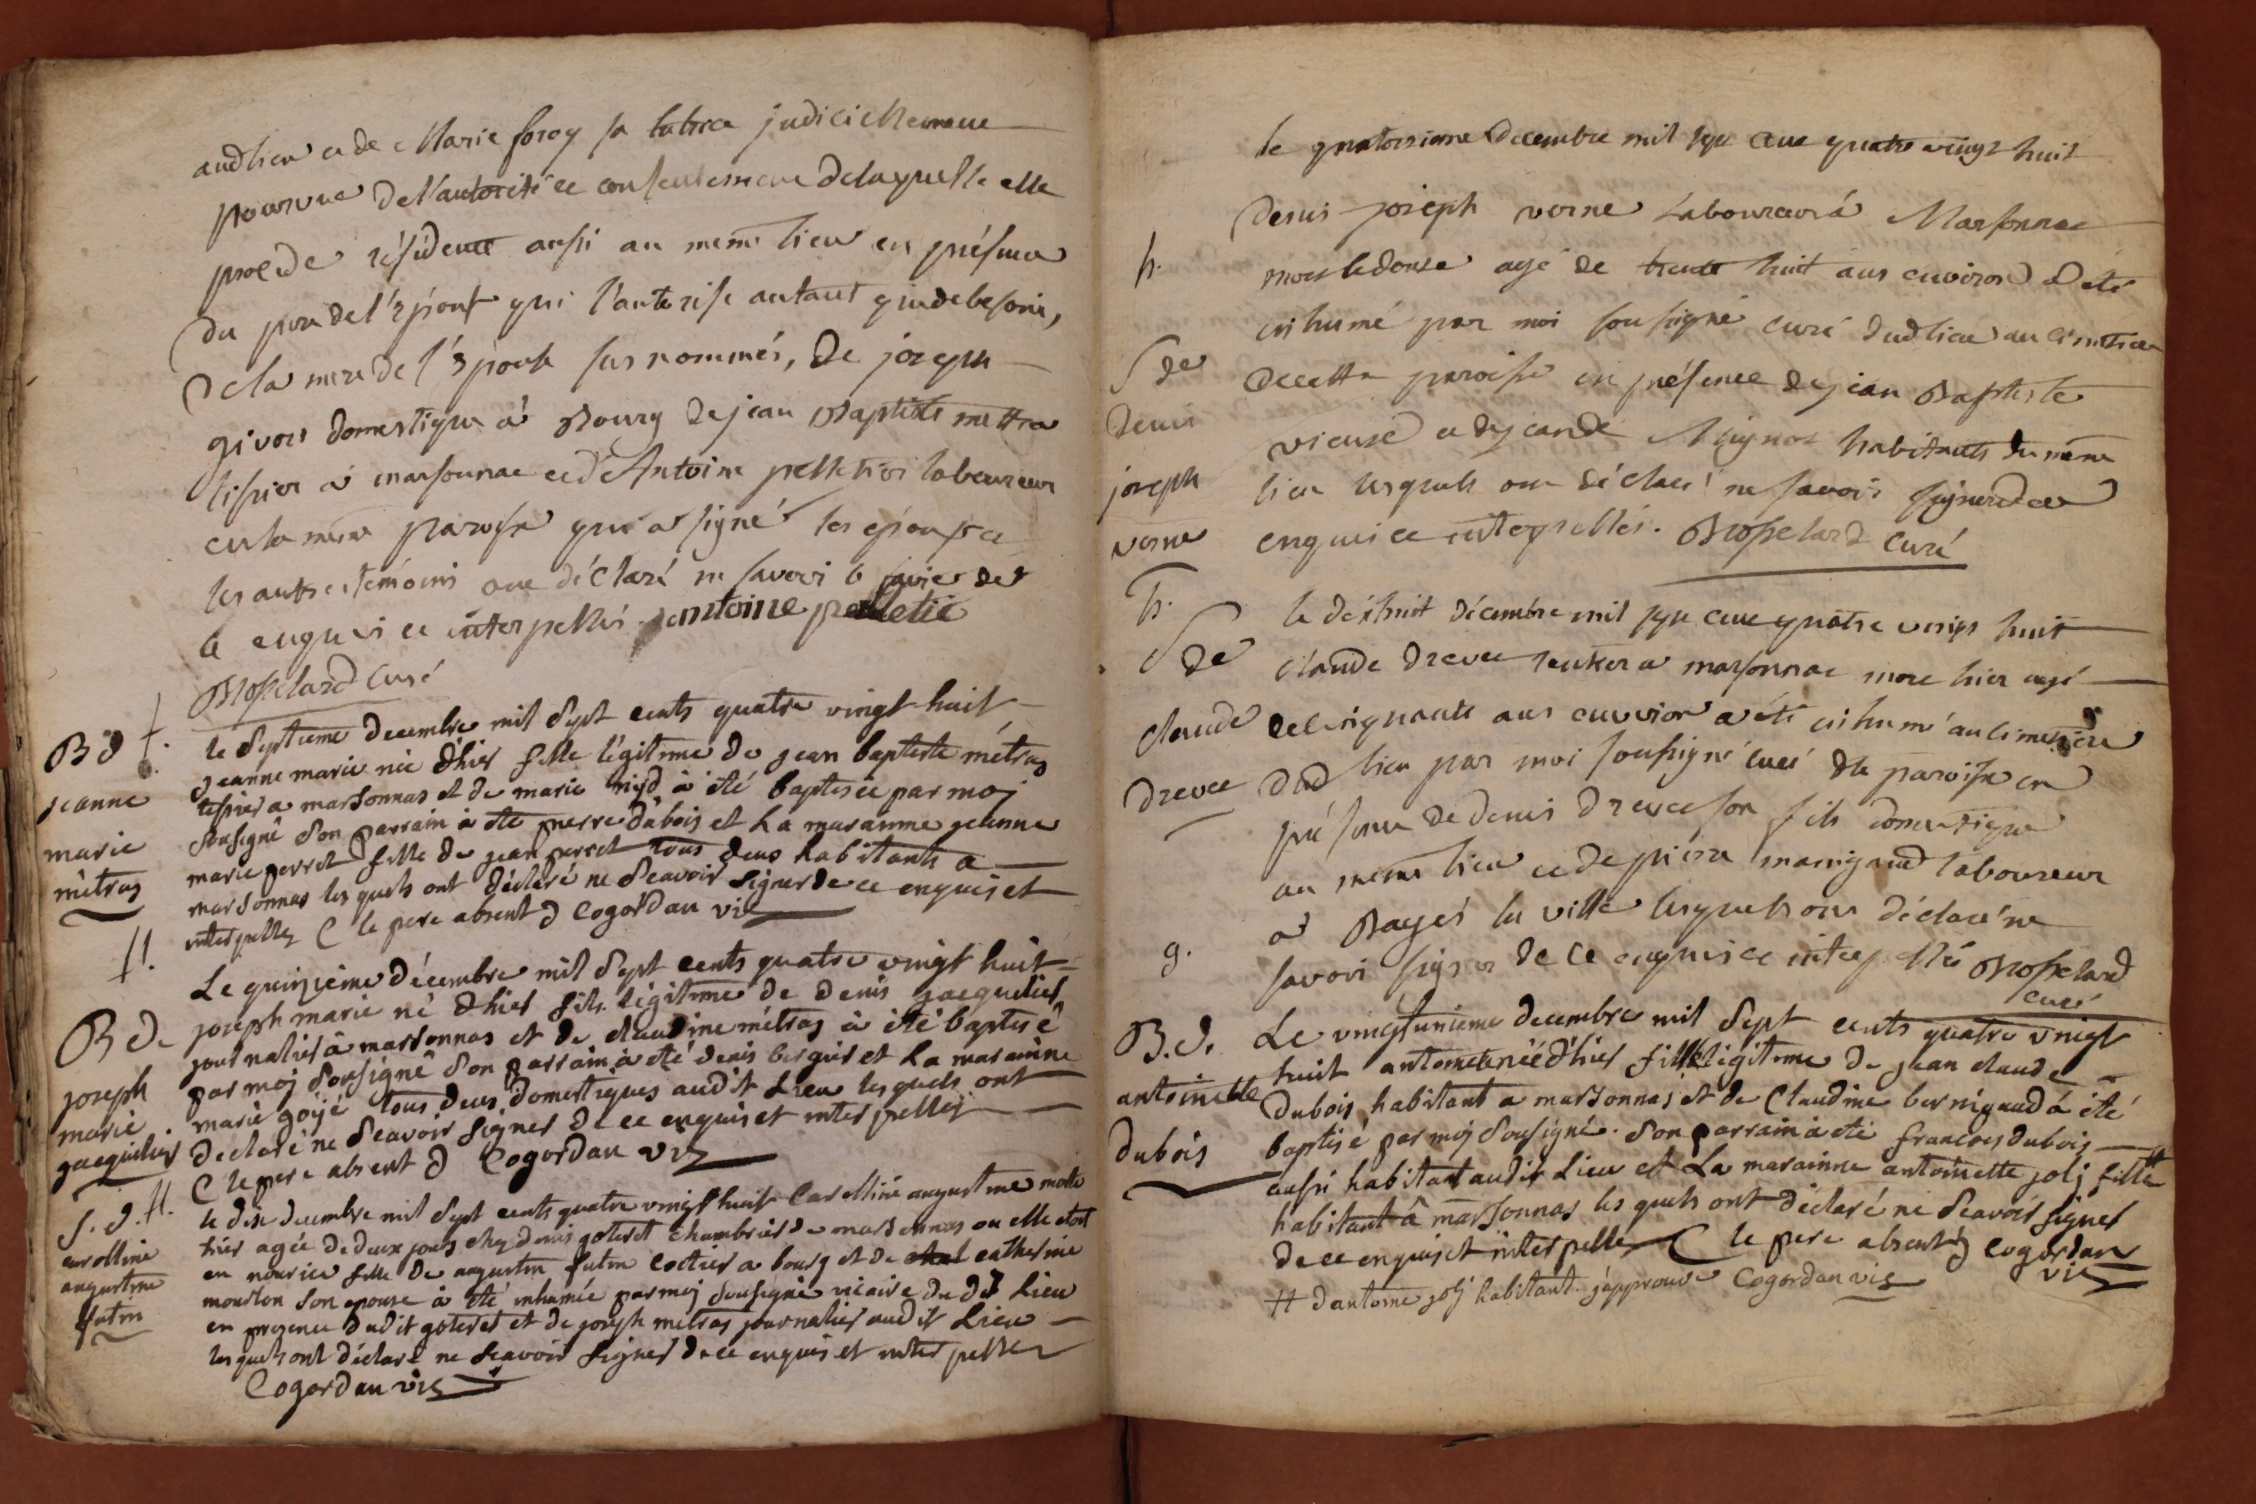 audlieu et de Marie foray sa tutrice judiciellement
pourvue de l'autorité et consentement de laquelle elle
procede résidente aussi au meme lieu en présence
du pere de l'époux qui l'autorise autant qu'indebesoin,
de la mere de l'épouse susnommés, de joseph
givors domestique à Bourg de jean Baptiste mettra
tissier à marsonnac et d'Antoine pelletier laboureur
en la meme paroisse qui a signé les epoux et
les autres témoins ont déclaré ne savoir le faire de
ce enquis et interpellés. antoine pelletié
Brosselard curé
B d
jeanne
marie
métras
le septieme decembre mil sept cents quatre vingt huit
jeanne marie née d'hier fille légitime de jean baptiste métras
tissier a marsonnas et de marie nijd à été baptisée par moj
sousigné son parrain a été pierre dubois et la maraine jeanne
marie perret fille de jean perret tous deux habitants a
marsonnas les quels ont déclaré ne sçavoir signer de ce enquis et
interpellez ( le pere absent ) Cogordan vic
B d.
joseph
marie
jacquelier
Le quinzième décembre mil sept cents quatre vingt huit
joseph marie né d'hier fils légitime de denis jacquelier
journalier à marsonnas et de claudine métras à été baptisé
par moj sousigné son parrain à été denis berguier et la maraine
marie goyé tous deux domestiques audit Lieu lesquels ont
declaré ne sçavoir signer de ce enquis et interpellez
( le pere absent ) Cogordan vic
S. d. H.
carolline
augustine
futin
le dix decembre mil sept cents quatre vingt huit Carolline augustine morte
hier agée de deux jours chez denis goteret chambrier de marsonnas ou elle etoit
en nourice fille de augustin futin cottier a bourg et de catherine
mourlon son epouse à été inhumée par moj sousigné vicaire du dt Lieu
en presence dudit goteret et de joseph metras journalier audit Lieu
les quels ont déclaré ne scavoir signer de ce enquis et interpellez
Cogordan vic
h.
S de
denis
joseph
verne
le quatorsieme decembre mil sept cent quatre vingt huit
denis joseph verne Laboureur à Marsonnac
mort le douse agé de trente huit ans environ a été
inhumé par moi sousigné curé dudlieu au cimetiere
de cette paroisse en présence de jean Baptiste
vieuse et de jean de Mignot habitants du même
lieu lesquels ont déclaré ne savoir signer de ce
enquis et interpellés. Brosselard curé
h.
S de
claude
drevet
le dexhuit décembre mil sept cent quatre vingt huit
claude drevet rentier a marsonnac mort hier agé
de cinquante ans environ a été inhumé au cimetiere
dud lieu par moi sousigné curé de la paroisse en
présence de denis drevet son fils domestique
au meme lieu et de pierre manigand laboureur
à Bagé la ville lesquels ont déclaré ne
savoir signer de ce enquis et interpellés Brosselard
curé
g.
B. d.
antoinette
dubois
Le vingtunieme decembre mil sept cents quatre vingt
huit antoinette née d'hier fille légitime de jean claude
dubois habitant a marsonnas et de Claudine bernigaud à été
baptisé par moj sousigné. son parrain à été francois dubois
aussi habitant audit Lieu et La marainne antoinette jolj fille #
habitant â marsonnas les quels ont déclaré ne sçavoir signer
de ce enquis et interpellez ( le pere absent ) Cogordan
vic
# d'antoine jolj habitant. j'approuve Cogordan vic